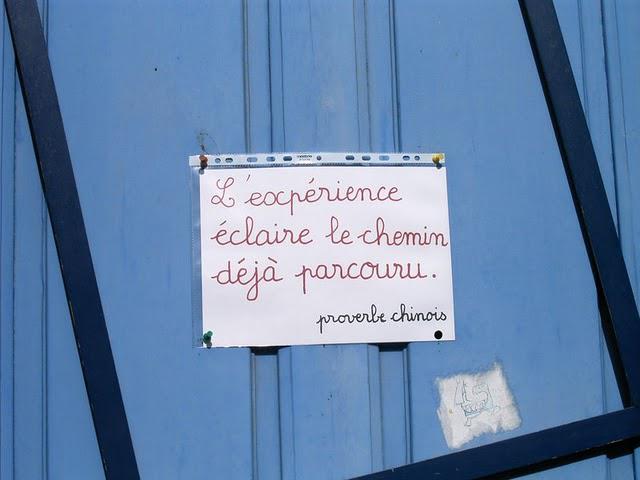 L'expérience
éclaire le chemin
déjà parcouru.
proverbe chinois